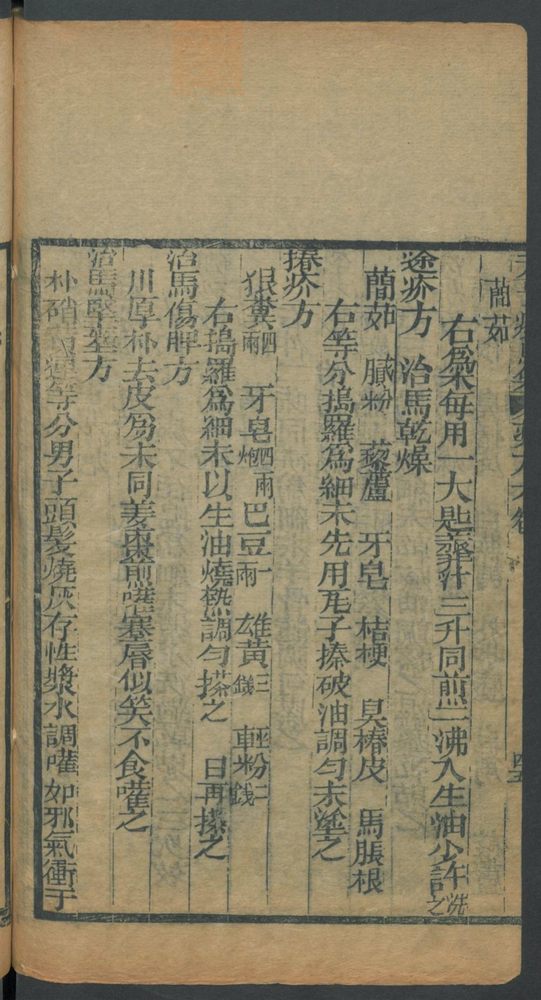 蕳茹
右爲末每用一大匙虀汁三升同煎一沸入生油少許洗之
塗疥方 治馬乾燥
蕳茹 膩粉 藜蘆 牙皂 桔梗 臭椿皮 馬脹根
右等分搗羅爲細末先用瓦子搽破油調勻末塗之
搽疥方
狼糞四兩 牙皂四兩炮 巴豆一兩 雄黃三錢 輕粉二錢
右搗羅爲細末以生油燒熱調勻搽之 日再搽之
治馬傷脾方
川厚朴去皮為末同姜棗煎灌蹇唇似笑不食灌之
治馬
方
朴硝
等分男子頭髮燒灰存性漿水調灌如邪氣衝于